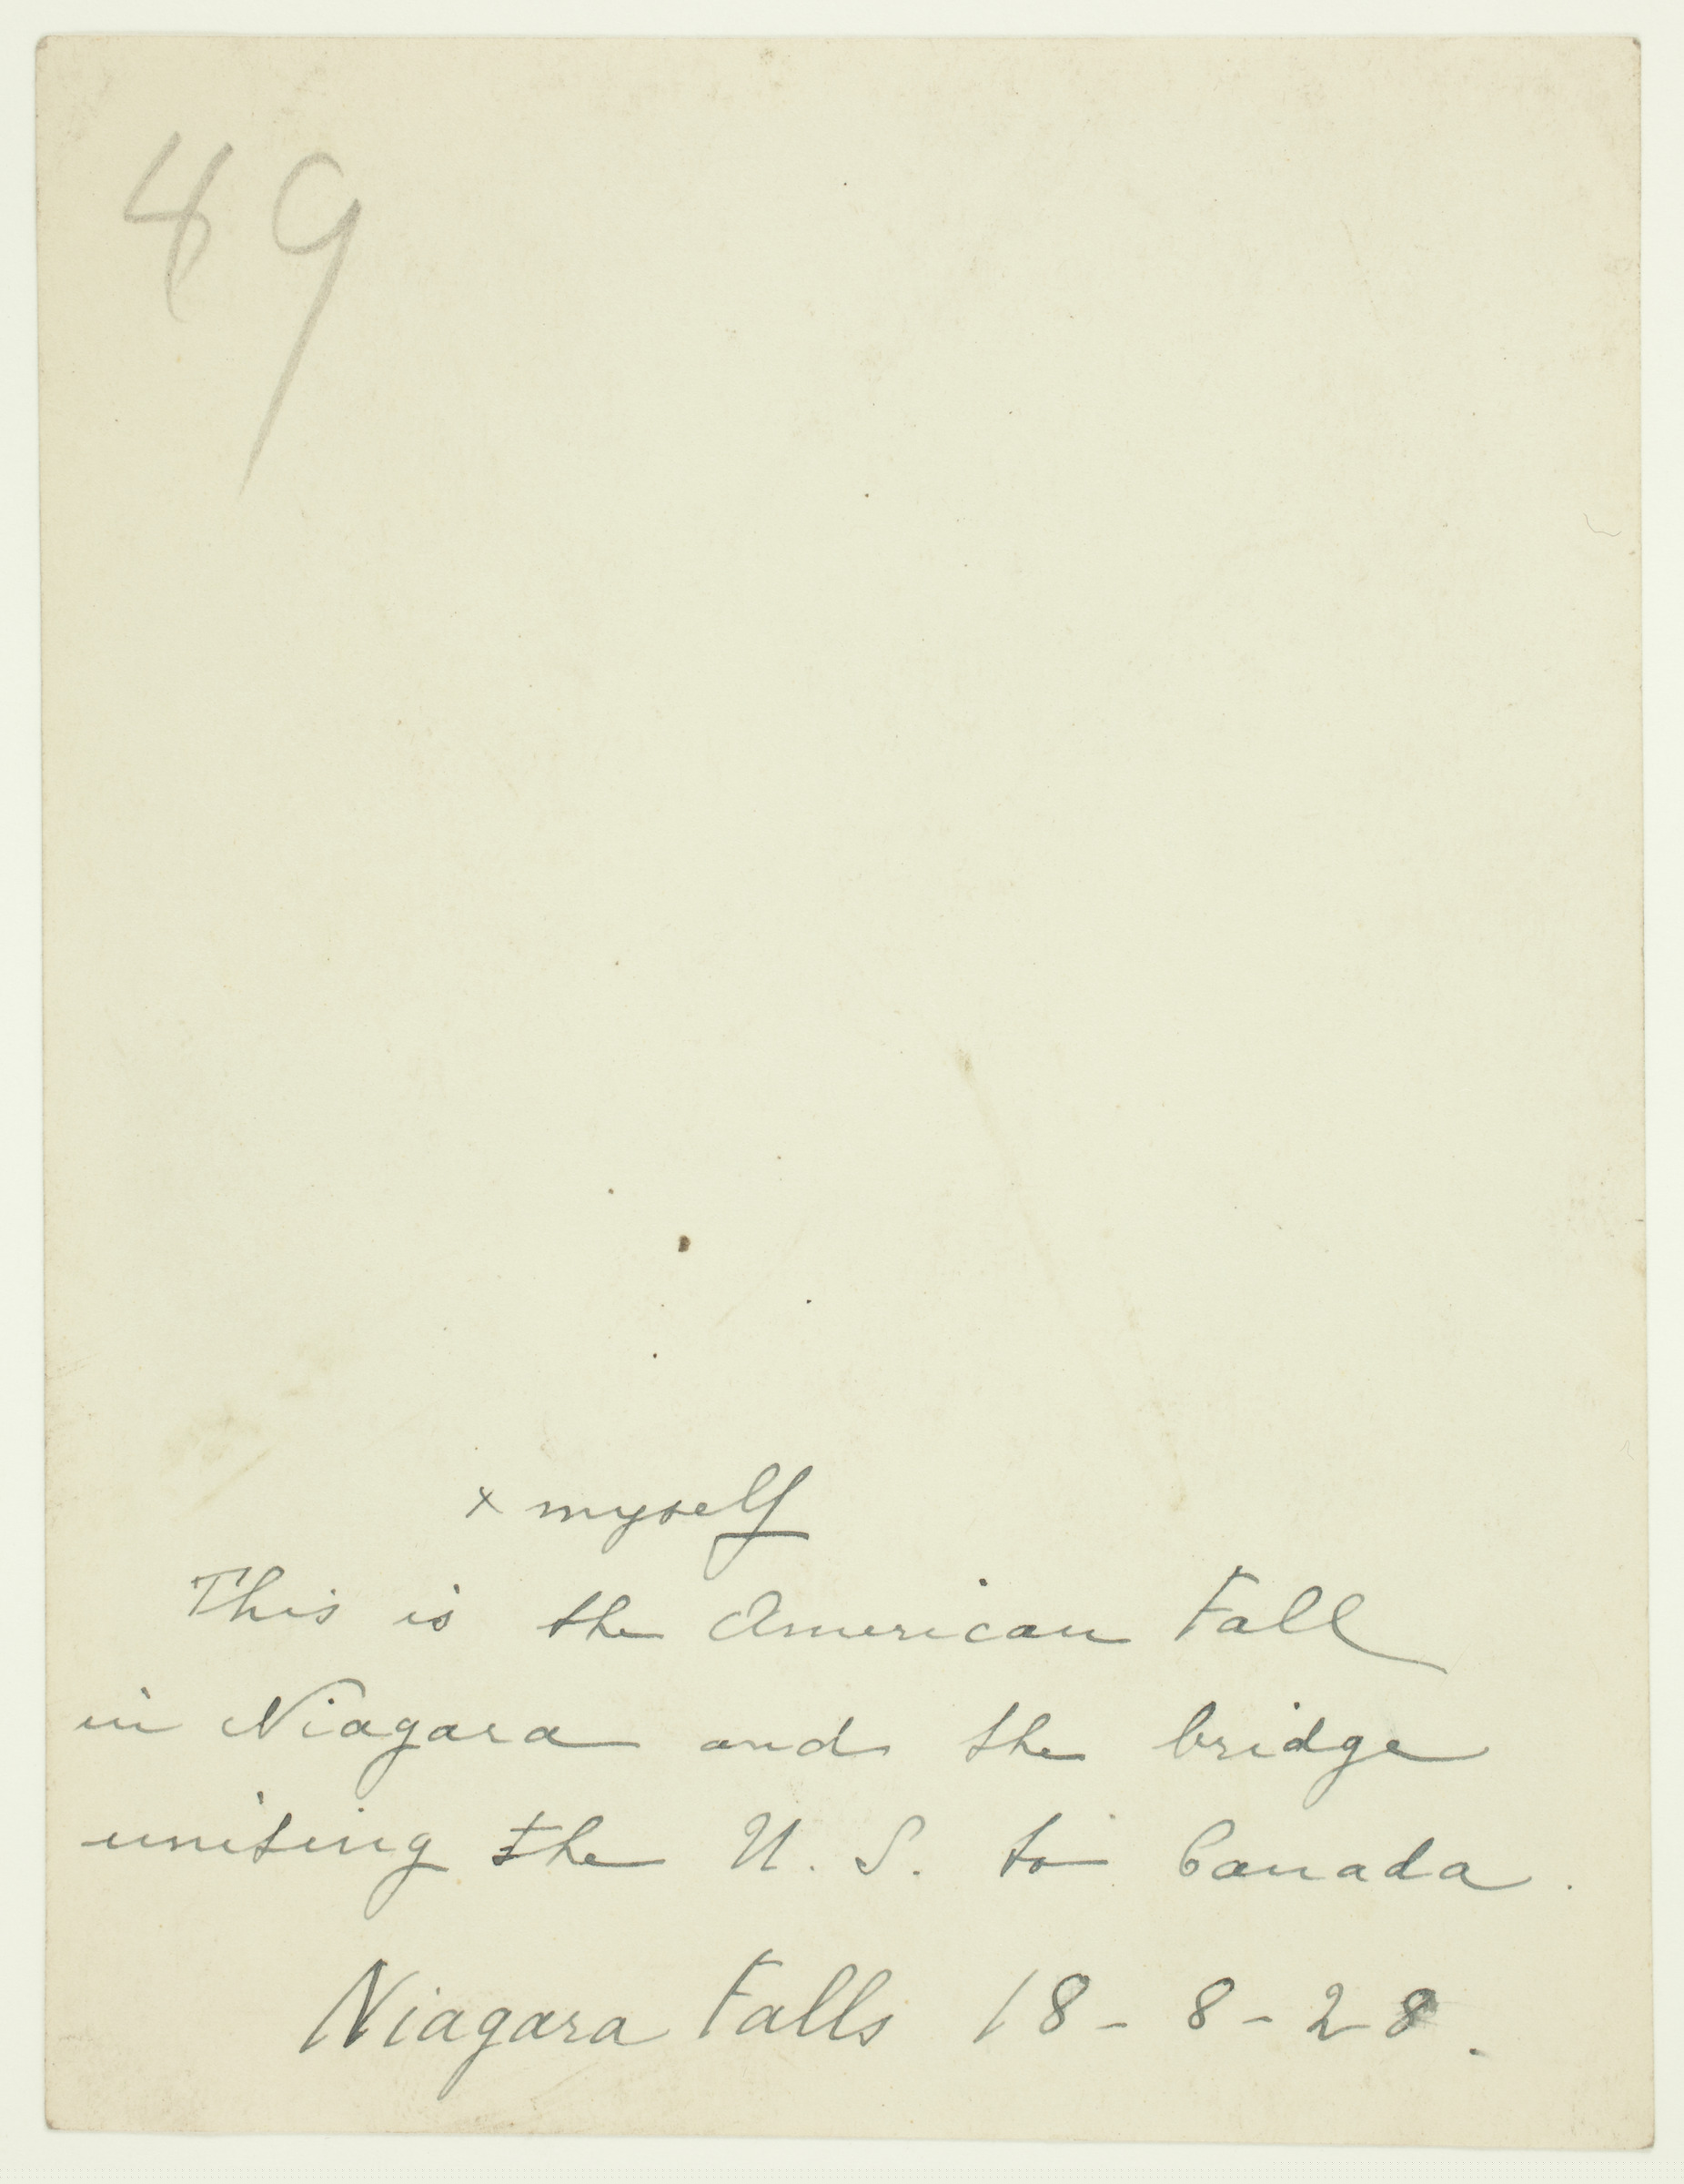 49
x myself
This is the American Fall
in Niagara and the bridge
uniting the U. S. to Canada.
Niagara Falls 18-8-28.